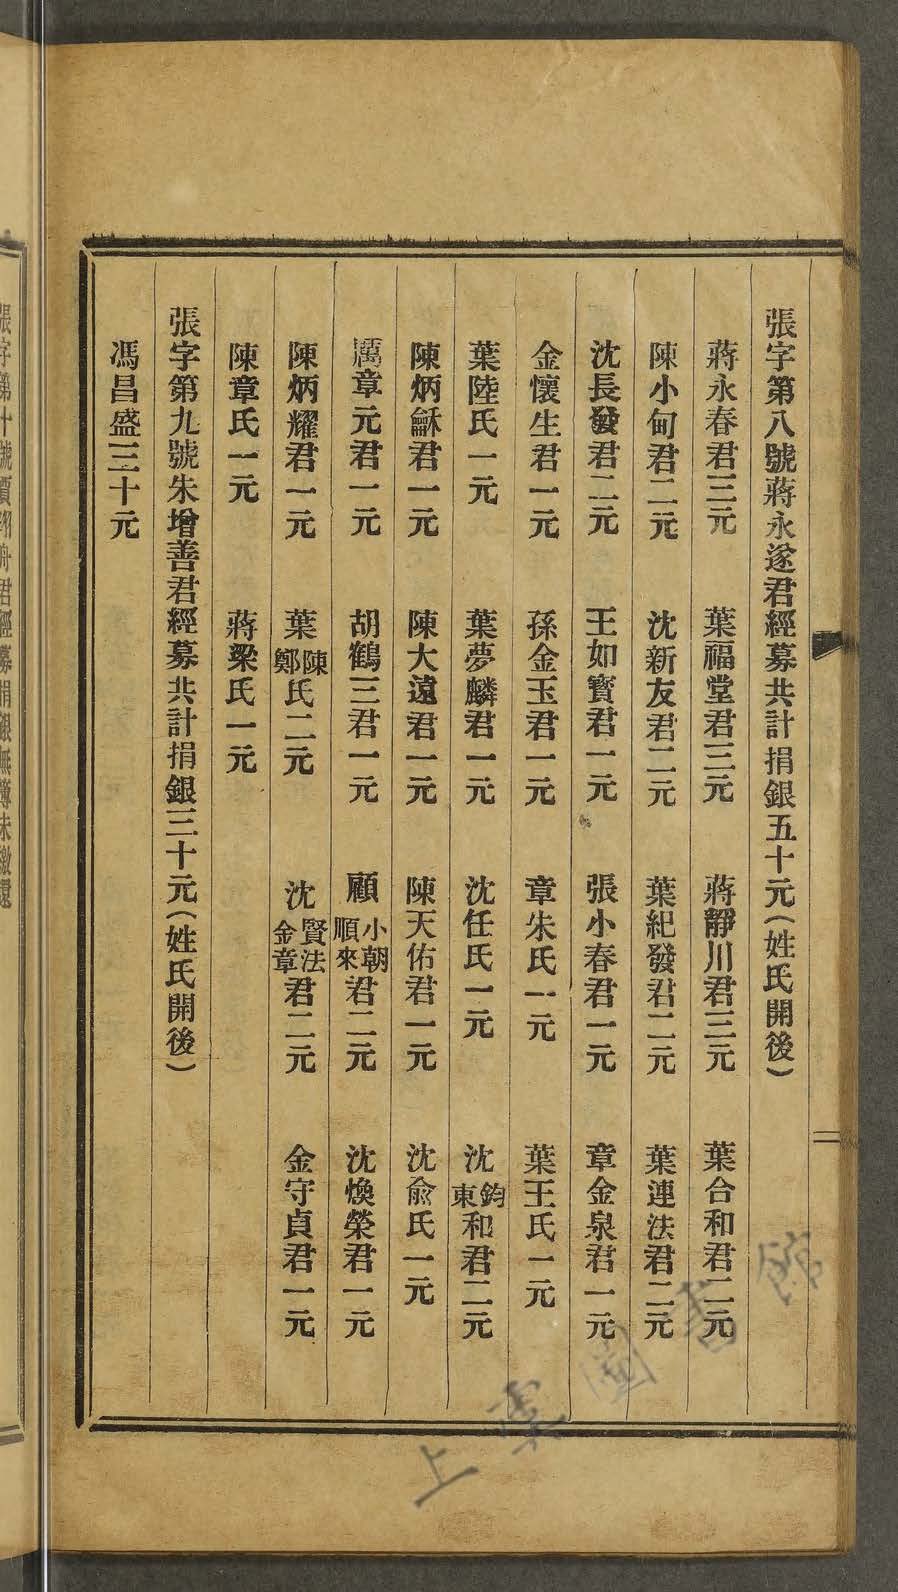 張字第八號蔣永遂君經募共計捐銀五十元(姓氏開後)
蔣永春君三元 葉福堂君三元 蔣靜川君三元 葉合和君二元
陳小甸君二元 沈新友君二元 葉紀發君二元 葉連法君二元
沈長發君二元 王如寶君一元 張小春君一元 章金泉君一元
金懷生君一元 孫金玉君一元 章朱氏一元 葉王氏一元
葉陸氏一元 葉夢麟君一元 沈任氏一元 沈鈞東和君二元
陳炳龢君一元 陳大遠君一元 陳天佑君一元 沈俞氏一元
厲章元君一元 胡鶴三君一元 顧小朝順來君二元 沈煥榮君一元
陳炳耀君一元 葉陳鄭氏二元 沈賢法金章君二元 金守貞君一元
陳章氏一元 蔣梁氏一元
張字第九號朱增善君經募共計捐銀三十元(姓氏開後)
馮昌盛三十元
二
張字第十號賈翔舟君經募捐銀無簿未繳還
上虞圖書館